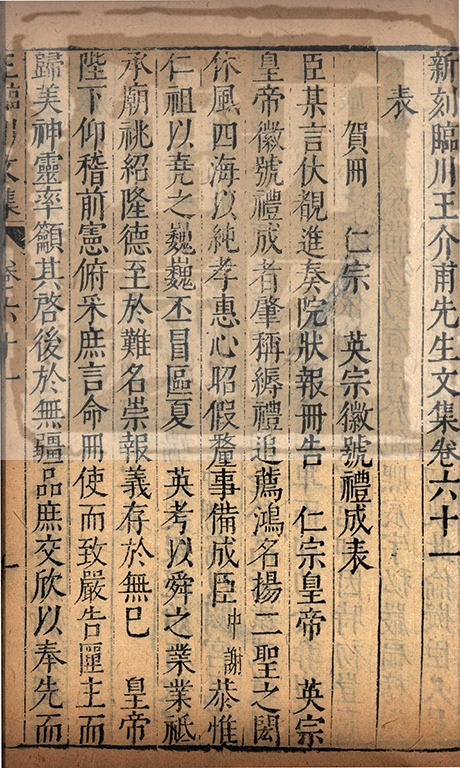 新刻臨川王介甫先生文集卷六十一
表
賀冊 仁宗 英宗徽號禮成表
臣某言伏覩進奏院狀報冊告 仁宗皇帝 英宗
皇帝徽號禮成者肇稱縟禮追薦鴻名揚二聖之閎
休風四海以純孝惠心昭假釐事備成臣中謝恭惟
仁祖以堯之巍巍丕冒區夏 英考以舜之業業祗
承廟祧紹隆德至於難名崇報義存於無已 皇帝
陛下仰稽前憲俯采庶言命冊使而致嚴告匰主而
歸美神靈率籲其啓後於無疆品庶交欣以奉先而
王臨川文集 卷六十一 一